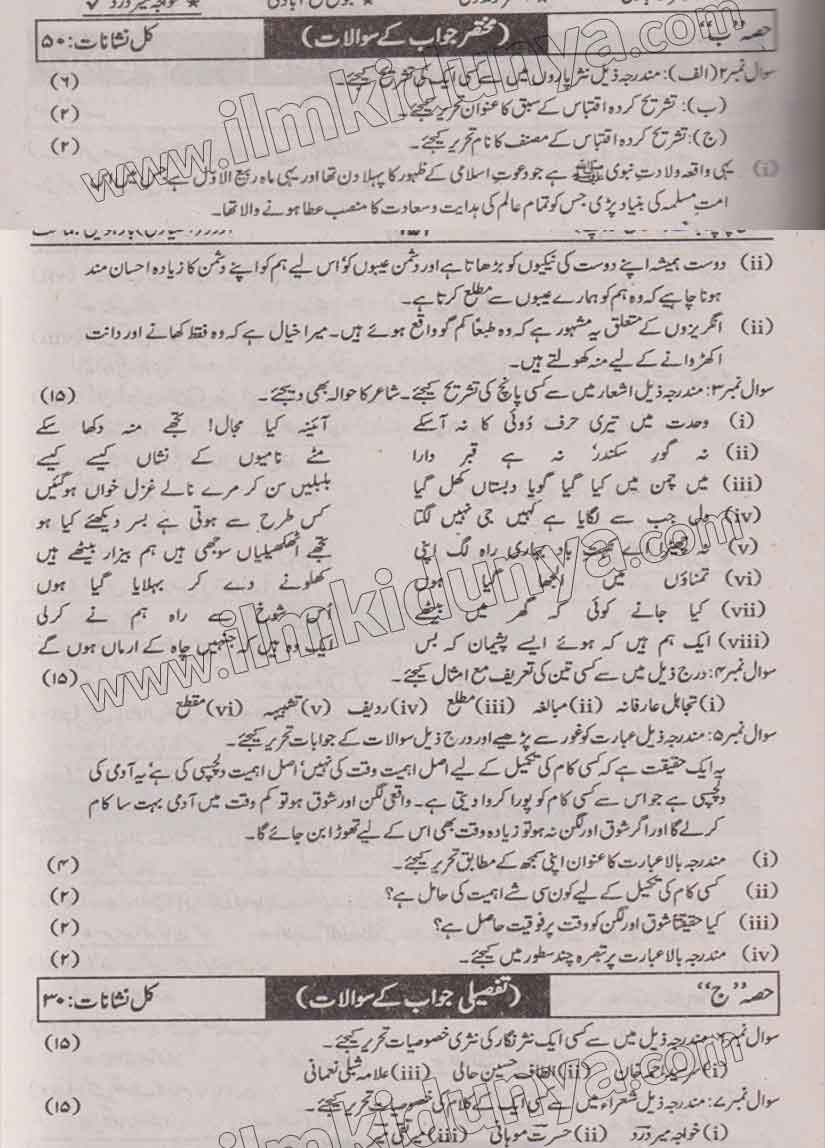 خواجہ میر درد ✓
حصہ "ب" (مختصر جواب کے سوالات) کل نشانات: ۵۰
سوال نمبر ۲ (الف): مندرجہ ذیل نثر پاروں میں سے کسی ایک کی تشریح کیجئے۔ (۶)
(ب): تشریح کردہ اقتباس کے سبق کا عنوان تحریر کیجئے۔ (۲)
(ج): تشریح کردہ اقتباس کے مصنف کا نام تحریر کیجئے۔ (۲)
(i) یہی واقعہ ولادتِ نبوی ﷺ ہے جو دعوتِ اسلامی کے ظہور کا پہلا دن تھا اور یہی ماہ ربیع الاوّل ہے جس میں اس
امتِ مسلمہ کی بنیاد پڑی جس کو تمام عالم کی ہدایت و سعادت کا منصب عطا ہونے والا تھا۔
(ii) دوست ہمیشہ اپنے دوست کی نیکیوں کو بڑھاتا ہے اور دشمن عیبوں کو، اس لیے ہم کو اپنے دشمن کا زیادہ احسان مند
ہونا چاہیے کہ وہ ہم کو ہمارے عیبوں سے مطلع کرتا ہے۔
(ii) انگریزوں کے متعلق یہ مشہور ہے کہ وہ طبعاً کم گو واقع ہوئے ہیں۔ میرا خیال ہے کہ وہ فقط کھانے اور دانت
اکھڑوانے کے لیے منہ کھولتے ہیں۔
سوال نمبر ۳: مندرجہ ذیل اشعار میں سے کسی پانچ کی تشریح کیجئے۔ شاعر کا حوالہ بھی دیجئے۔ (۱۵)
(i) وحدت میں تیری حرف دُوئی کا نہ آسکے آئینہ کیا مجال! تجھے منہ دکھا سکے
(ii) نہ گورِ سکندر نہ ہے قبرِ دارا مٹے نامیوں کے نشاں کیسے کیسے
(iii) میں چمن میں کیا گیا گویا دبستاں کھل گیا بلبلیں سن کر مرے نالے غزل خواں ہوگئیں
(iv) ولی جب سے لگایا ہے کہیں جی نہیں لگتا کس طرح سے ہوتی ہے بسر دیکھئے کیا ہو
(v) نہ چھیڑ اے نکہتِ بادِ بہاری راہ لگ اپنی تجھے اٹھکھیلیاں سوجھی ہیں ہم بیزار بیٹھے ہیں
(vi) تمناؤں میں الجھا گیا ہوں کھلونے دے کر بہلایا گیا ہوں
(vii) کیا جانے کوئی کہ گھر میں بیٹھے اُس شوخ سے راہ ہم نے کرلی
(viii) ایک ہم ہیں کہ ہوئے ایسے پشیمان کہ بس ایک وہ ہیں کہ جنہیں چاہ کے ارماں ہوں گے
سوال نمبر ۴: درج ذیل میں سے کسی تین کی تعریف مع امثال کیجئے۔ (۱۵)
(i) تجاہل عارفانہ (ii) مبالغہ (iii) مطلع (iv) ردیف (v) تشبیہہ (vi) مقطع
سوال نمبر ۵: مندرجہ ذیل عبارت کو غور سے پڑھیے اور درج ذیل سوالات کے جوابات تحریر کیجئے۔
یہ ایک حقیقت ہے کہ کسی کام کی تکمیل کے لیے اصل اہمیت وقت کی نہیں، اصل اہمیت دلچسپی کی ہے، یہ آدمی کی
دلچسپی ہے جو اس سے کسی کام کو پورا کروا دیتی ہے۔ واقعی لگن اور شوق ہو تو کم وقت میں آدمی بہت سا کام
کرلے گا اور اگر شوق اور لگن نہ ہو تو زیادہ وقت بھی اس کے لیے تھوڑا بن جائے گا۔
(i) مندرجہ بالا عبارت کا عنوان اپنی سمجھ کے مطابق تحریر کیجئے۔ (۴)
(ii) کسی کام کی تکمیل کے لیے کون سی شے اہمیت کی حامل ہے؟ (۲)
(iii) کیا حقیقتاً شوق اور لگن کو وقت پر فوقیت حاصل ہے؟ (۲)
(iv) مندرجہ بالا عبارت پر تبصرہ چند سطور میں کیجئے۔ (۲)
حصہ "ج" (تفصیلی جواب کے سوالات) کل نشانات: ۳۰
سوال نمبر ۶: مندرجہ ذیل میں سے کسی ایک نثر نگار کی نثری خصوصیات تحریر کیجئے۔ (۱۵)
(i) سرسید احمد خان (ii) الطاف حسین حالی (iii) علامہ شبلی نعمانی
سوال نمبر ۷: مندرجہ ذیل شعراء میں سے کسی ایک کے کلام کی خصوصیات تحریر کیجئے۔ (۱۵)
(i) خواجہ میر درد (ii) حسرت موہانی (iii) میر تقی میر
www.ilmkidunya.com
www.ilmkidunya.com
www.ilmkidunya.com